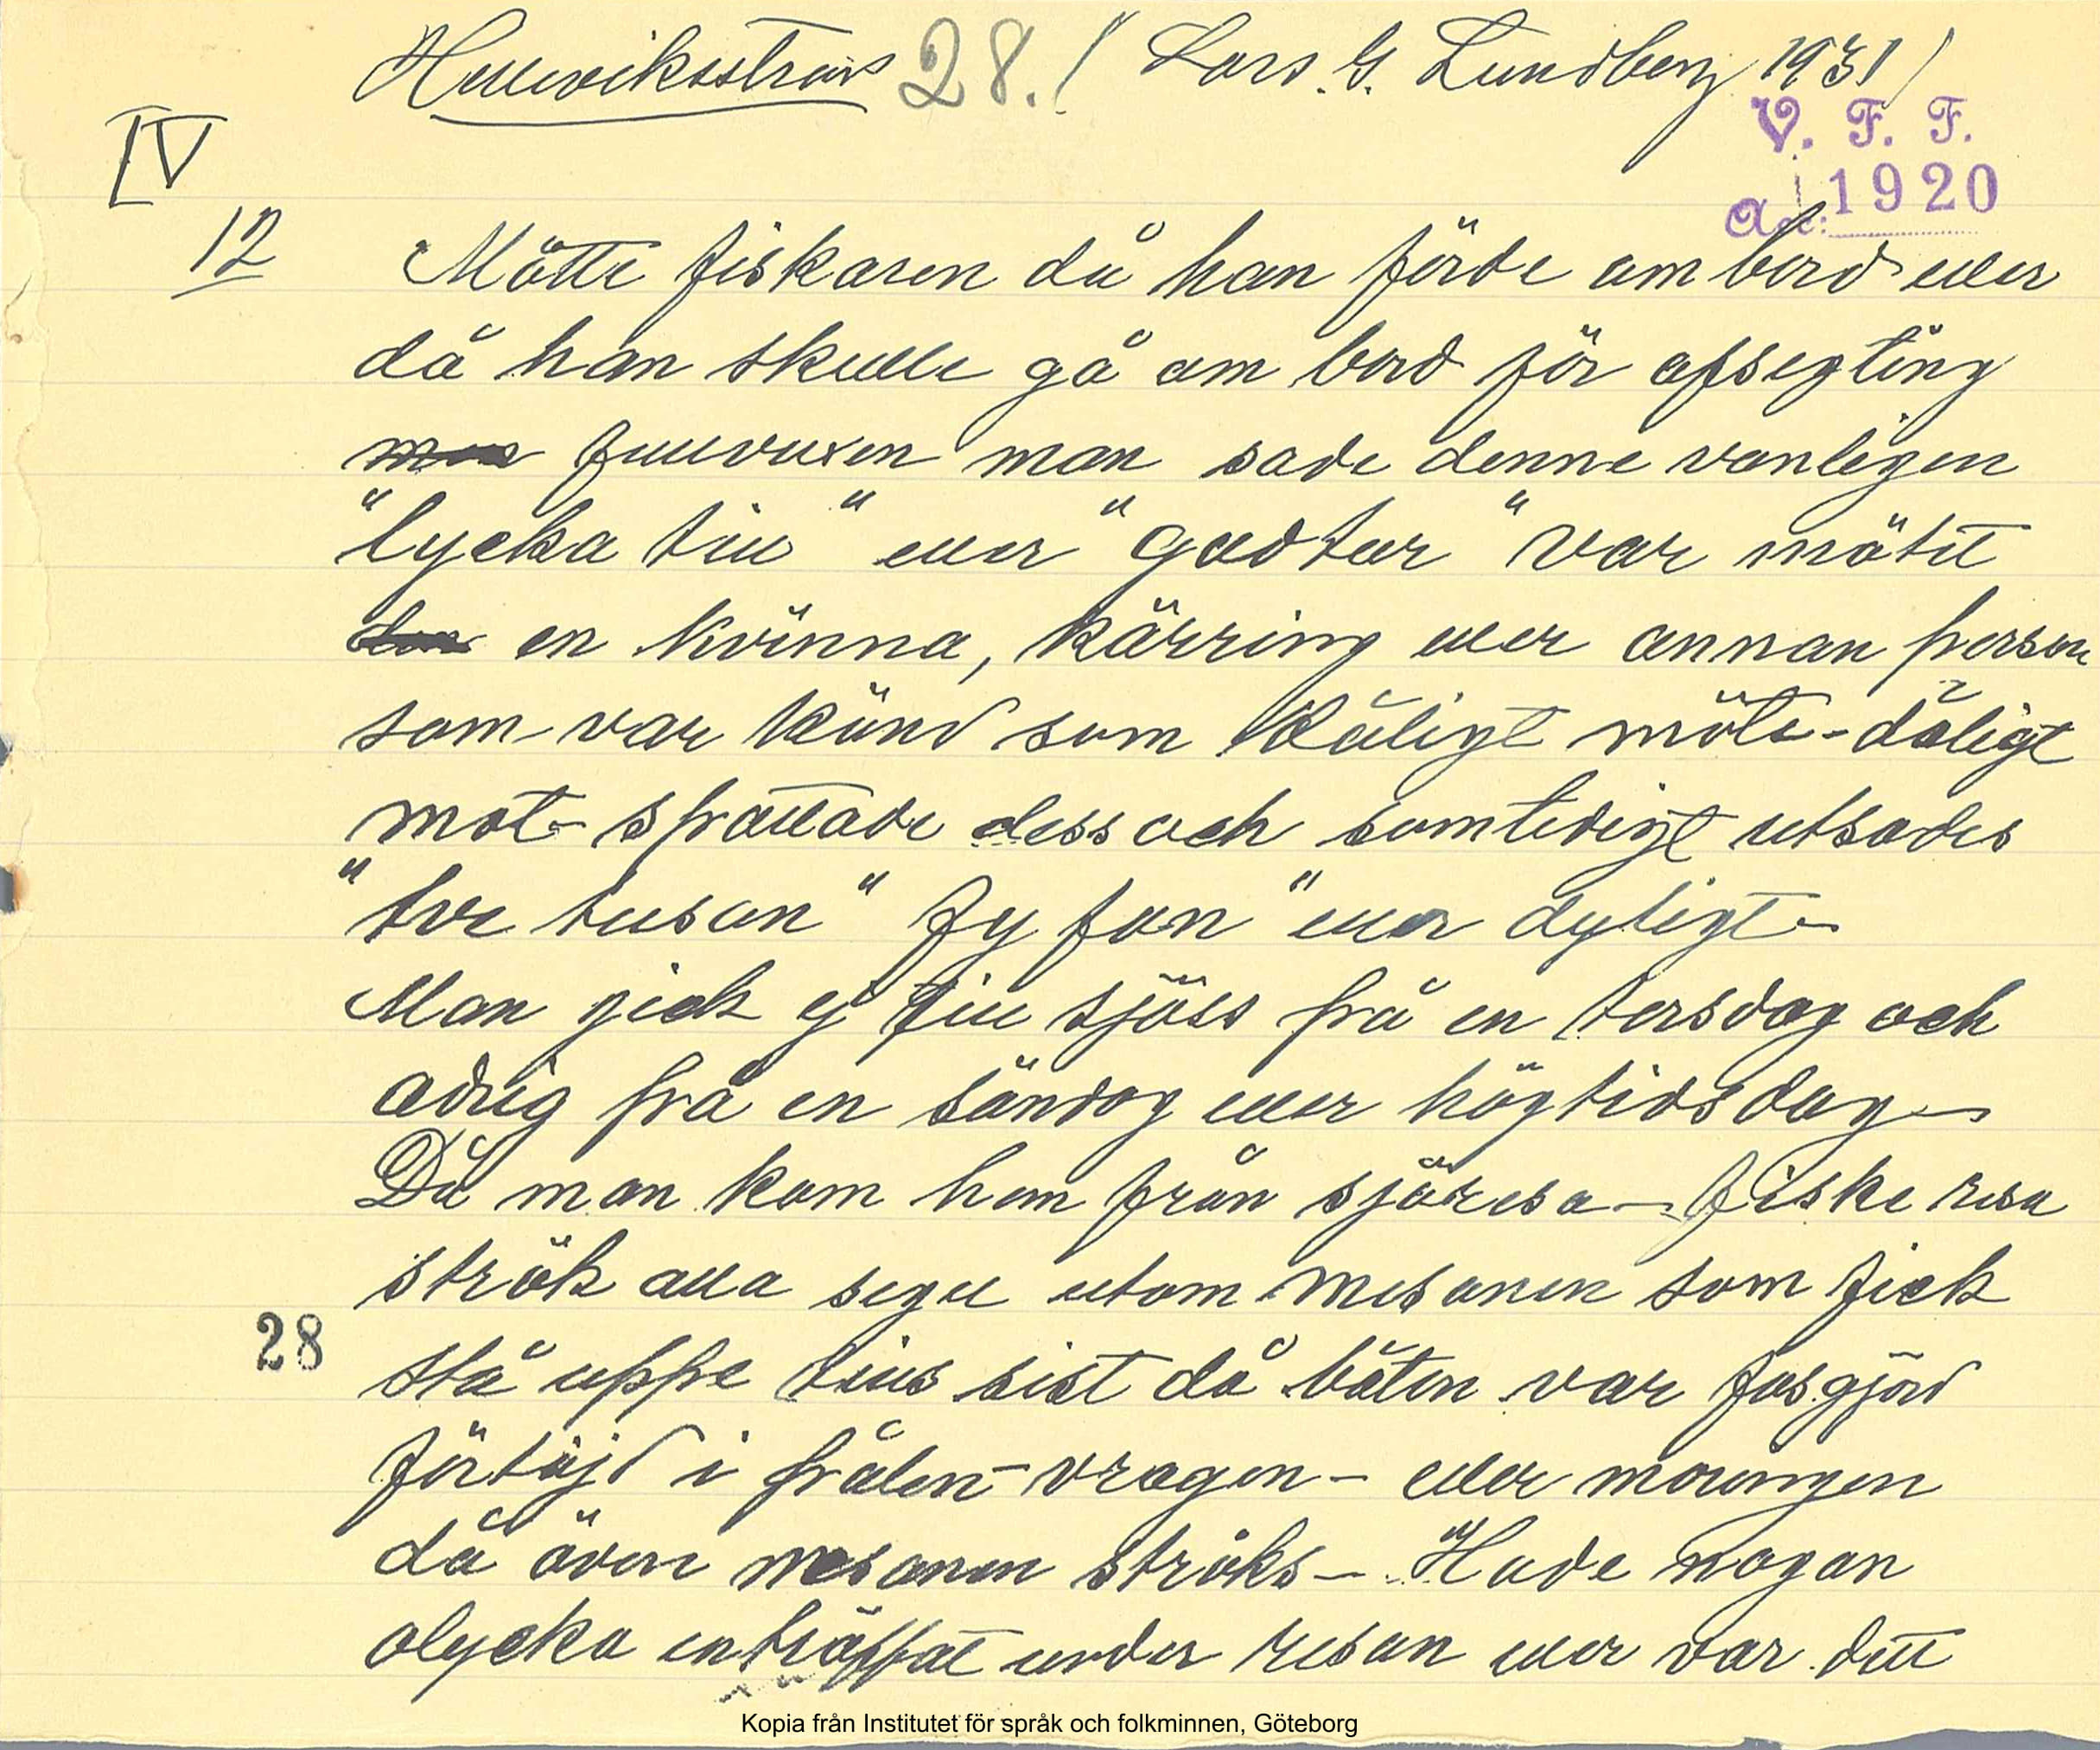 Hälleviksstrand 28. (Lars. G. Lundberg 1931)
V. F. F.
IV
Acc: 1920
12 Mötte fiskaren då han förde om bord eller
då han skulle gå om bord för afsegling
fullvuxen man sade denne vanligen
"lycka till" eller "gud tur" var mötet
en kvinna, kärring eller annan person
som var känd som dåligt möte - dåligt
mot - spottade dess och samtidigt utsades
"tve tusan" Fy fan" eller dyligt -
Man gick ej till sjöss frå en torsdag och
adrig frå en söndag eller högtidsdag -
Då man kom hem från sjöresa - fiske resa
strök alla segel utom mesanen som fick
28 stå uppe tills sist då båten var fasgjord
förtöjd i pålen - vragen - eller moringen
då även mesanen ströks - Hade nogon
olycka inträffat under resan eller var dett
Kopia från Institutet för språk och folkminnen, Göteborg